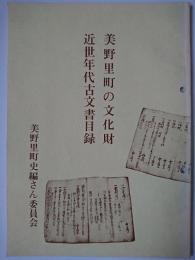 美野里町の文化財
近世年代古文書目録
美野里町史編さん委員会